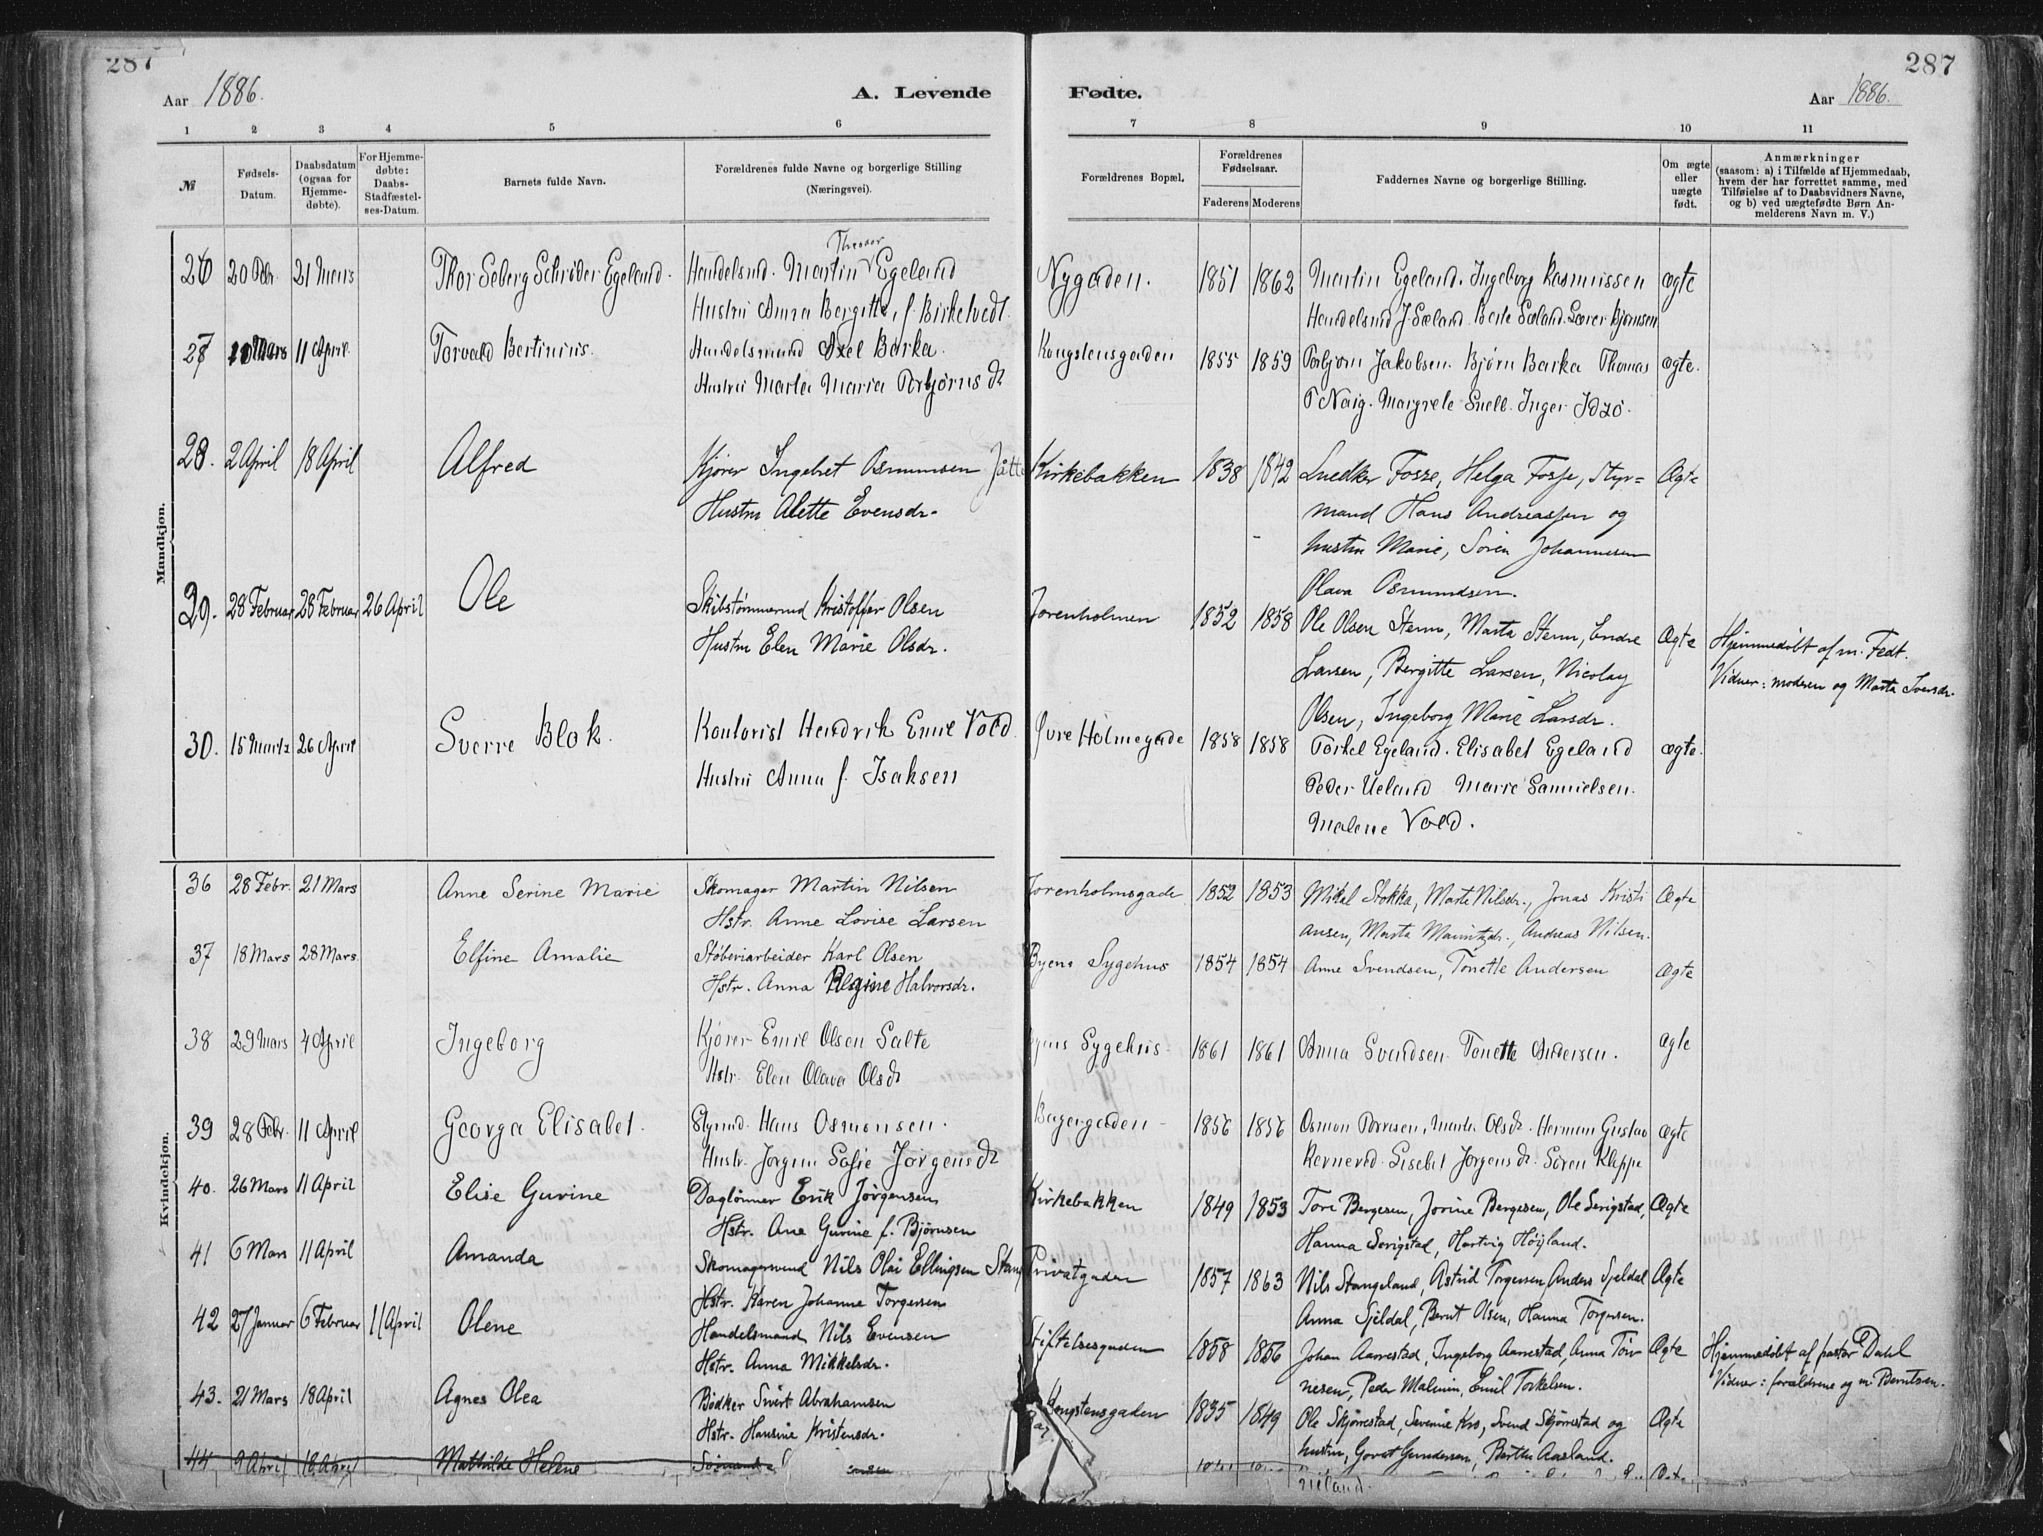 287
287
Aar 1886.
A. Levende Fødte.
Aar 1886.
1 2 3 4 5 6 7 8 9 10 11
№
Fødsels-Datum.
Daabsdatum (ogsaa for Hjemme-døbte).
For Hjemme-døbte: Daabs-Stadfæstel-ses-Datum.
Barnets fulde Navn.
Forældrenes fulde Navne og borgerlige Stilling
(Næringsvei).
Forældrenes Bopæl.
Forældrenes Fødselsaar.
Faderens Moderens
Faddernes Navne og borgerlige Stilling.
Om ægte eller uægte født.
Anmærkninger
(saasom: a) i Tilfælde af Hjemmedaab,
hvem der har forrettet samme, med
Tilføielse af to Daabsvidners Navne,
og b) ved uægtefødte Børn An-
melderens Navn m. V.)
Mandkjøn.
Theodor
26 20 Febr 21 Mars Thor Seberg Schrøder Egeland. Handelsmd. Martin Egeland Nygaden. 1851 1862 Martin Egeland. Ingeborg Rasmussen ægte
Hustru Anna Bergitte, f. Birketvedt. Handelsmd J. Sæland. Berte Sæland. Bjørnsen
27 Mars 11 April. Torvald Bertinius. Handelsmand Axel Barka. Kongstensgaden 1855 1859 Torbjørn Jakobsen. Bjørn Barka Thomas ægte.
Hustru Marta Maria Torbjørns dt P Naig. Margrete Snell. Inger Idsø.
28. 2 April 18 April Alfred Kjører Ingebret Osmunsen Jåtte Kirkebakken 1838 1842 Snedker Fosse, Helga Fosse, Styr= Ægte
Hustru Alette Evensdr. mand Hans Andreassen og
hustru Marie, Sören Johannesen
Olava Osmundsen.
29. 28 Februar 28 Februar 26 April Ole Skibstømmermd Kristoffer Olsen Jorenholmen 1852 1858 Ole Olsen Stenn, Marta Stenn, Endre Ægte Hjemmedøbt af m. Fedt.
Hustru Elen Marie Olsdr. Larsen, Bergitte Larsen, Nicolay Vidner: moderen og Marta Iversdr.
Olsen, Ingeborg Marie Larsdr.
30. 15 Marts 26 April Sverre Blok. Kontorist Hendrik Emil Vold Øvre Holmegade 1858 1858 Torkel Egeland. Elisabet Egeland ægte.
Hustru Anna f. Isaksen Peder Ueland Marie Samuelsen.
Malene Vold.
Kvindekjøn.
36 28 Febr. 21 Mars Anne Serine Marie Skomager Martin Nilsen Jorenholmsgade 1852 1853 Mikal Stokka, Marte Nilsdr., Jonas Kristi Ægte
Hstr. Anne Lovise Larsen ansen, Marta Mauritzdr., Andreas Nilsen.
37 18 Mars 28 Mars. Elfine Amalie Støberiarbeider Karl Olsen Byens Sygehus 1854 1854 Anne Svendsen, Tonette Andersen Ægte
Hstr. Anna Regine Halvorsdr.
38 29 Mars 4 April Ingeborg Kjører Emil Olsen Salte Byens Sygehus 1861 1861 Anna Svendsen. Tonette Andersen. ægte
Hstr. Elen Olava Olsdt
39 28 Febr. 11 April Georga Elisabet. Styrmd. Hans Osmonsen. Bagergaden 1856 1856 Osmon Marta Olsdt. Herman Gustav ægte
Hustr. Jørgine Sofie Jørgensdt Lisebet Jørgensdt. Sören Kleppe
40. 26 Mars 11 April Elise Gurine Daglønner Erik Jörgensen Kirkebakken 1849 1853 Tore Bergesen, Jorine Bergesen, Ole Serigstad, Ægte
Hstr. Ane Gurine f. Bjørnsen Hanna Serigstad, Hartvig Höyland.
41 6 Mars 11 April Amanda Skomagersvend Nils Olai Ellingsen Stang Privatgaden 1857 1863 Nils Stangeland, Astrid Torgersen, Anders Sjeldal Ægte
Hstr. Karen Johanne Torgersen Anna Sjeldal, Bernt Olsen, Hanna Torgersen.
42 27 Januar 6 Februar 11 April Olene Handelsmand Nils Evensen Stiftelsesgaden 1858 1856 Johan Aarrestad, Ingeborg Aarrestad, Anna Tön Ægte Hjemmedøbt af pastor Dahl
Hstr. Anna Mikkelsdr. nesen, Peder Malmin, Emil Torkelsen. Vidner: forældrene og m Berntsen.
43. 21 Mars 18 April Agnes Olea Bødker Sivert Abrahamsen Kongstensgaden 1835 1849 Ole Skjørrestad, Severine Kro, Svend Skjørrestad og Ægte
Hstr. Hansine Kristensdr. hustru, Govert Gundersen, Berthe Aasland.
44 9 April 18 April Mathilde Helene